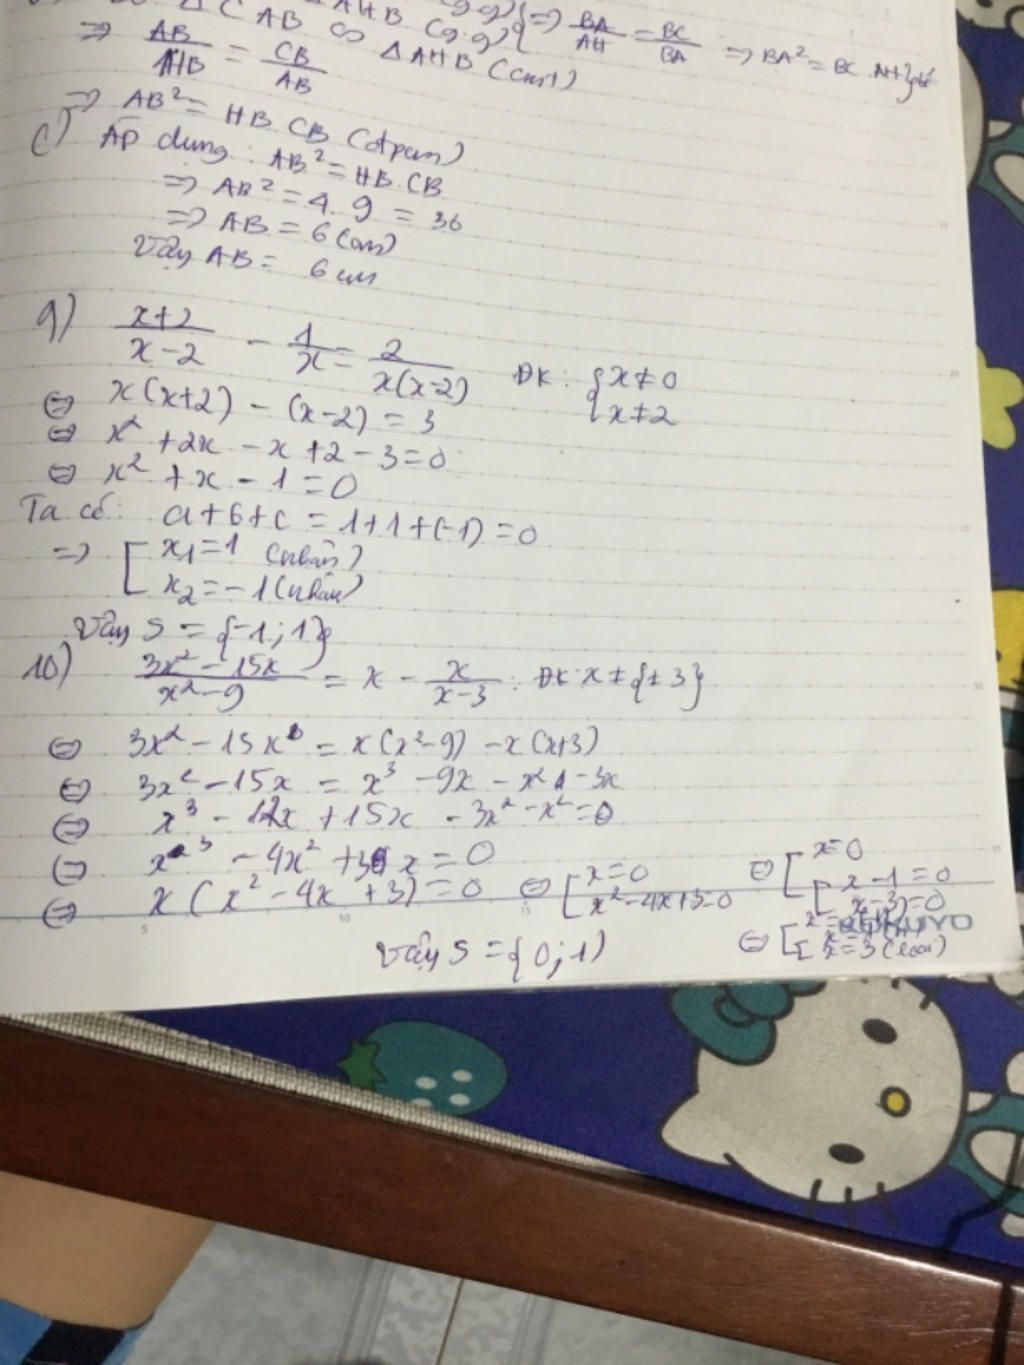 Δ C AB ∽ Δ AHB (g.g) } => BA/AH = BC/BA => BA² = BC.
=> AB/HB = CB/AB
Δ AHB (cmt)
=> AB² = HB. CB (đpcm)
c) Áp dụng: AB² = HB. CB
=> AB² = 4. 9 = 36
=> AB = 6 (cm)
Vậy AB = 6 cm
9) x+2/x-2 - 1/x = 2/x(x-2) ĐK: { x ≠ 0
{ x ≠ 2
⇔ x(x+2) - (x-2) = 3
⇔ x² + 2x - x + 2 - 3 = 0
⇔ x² + x - 1 = 0
Ta có: a+b+c = 1+1+(-1) = 0
=> [ x₁ = 1 (nhận)
x₂ = -1 (nhận)
Vậy S = {-1; 1}
10) 3x² - 15x/x² - 9 = x - x/x-3 : ĐK: x ≠ {±3}
⇔ 3x² - 15x = x(x²-9) - x(x+3)
⇔ 3x² - 15x = x³ - 9x - x² - 3x
⇔ x³ - 12x + 15x - 3x² - x² = 0
⇔ x³ - 4x² + 3x = 0
⇔ x(x² - 4x + 3) = 0 ⇔ [ x = 0
x² - 4x + 3 = 0
⇔ [ x = 0
[ x - 1 = 0
x - 3 = 0
KOKUYO
⇔ [ x = 3 (loại)
Vậy S = {0; 1)